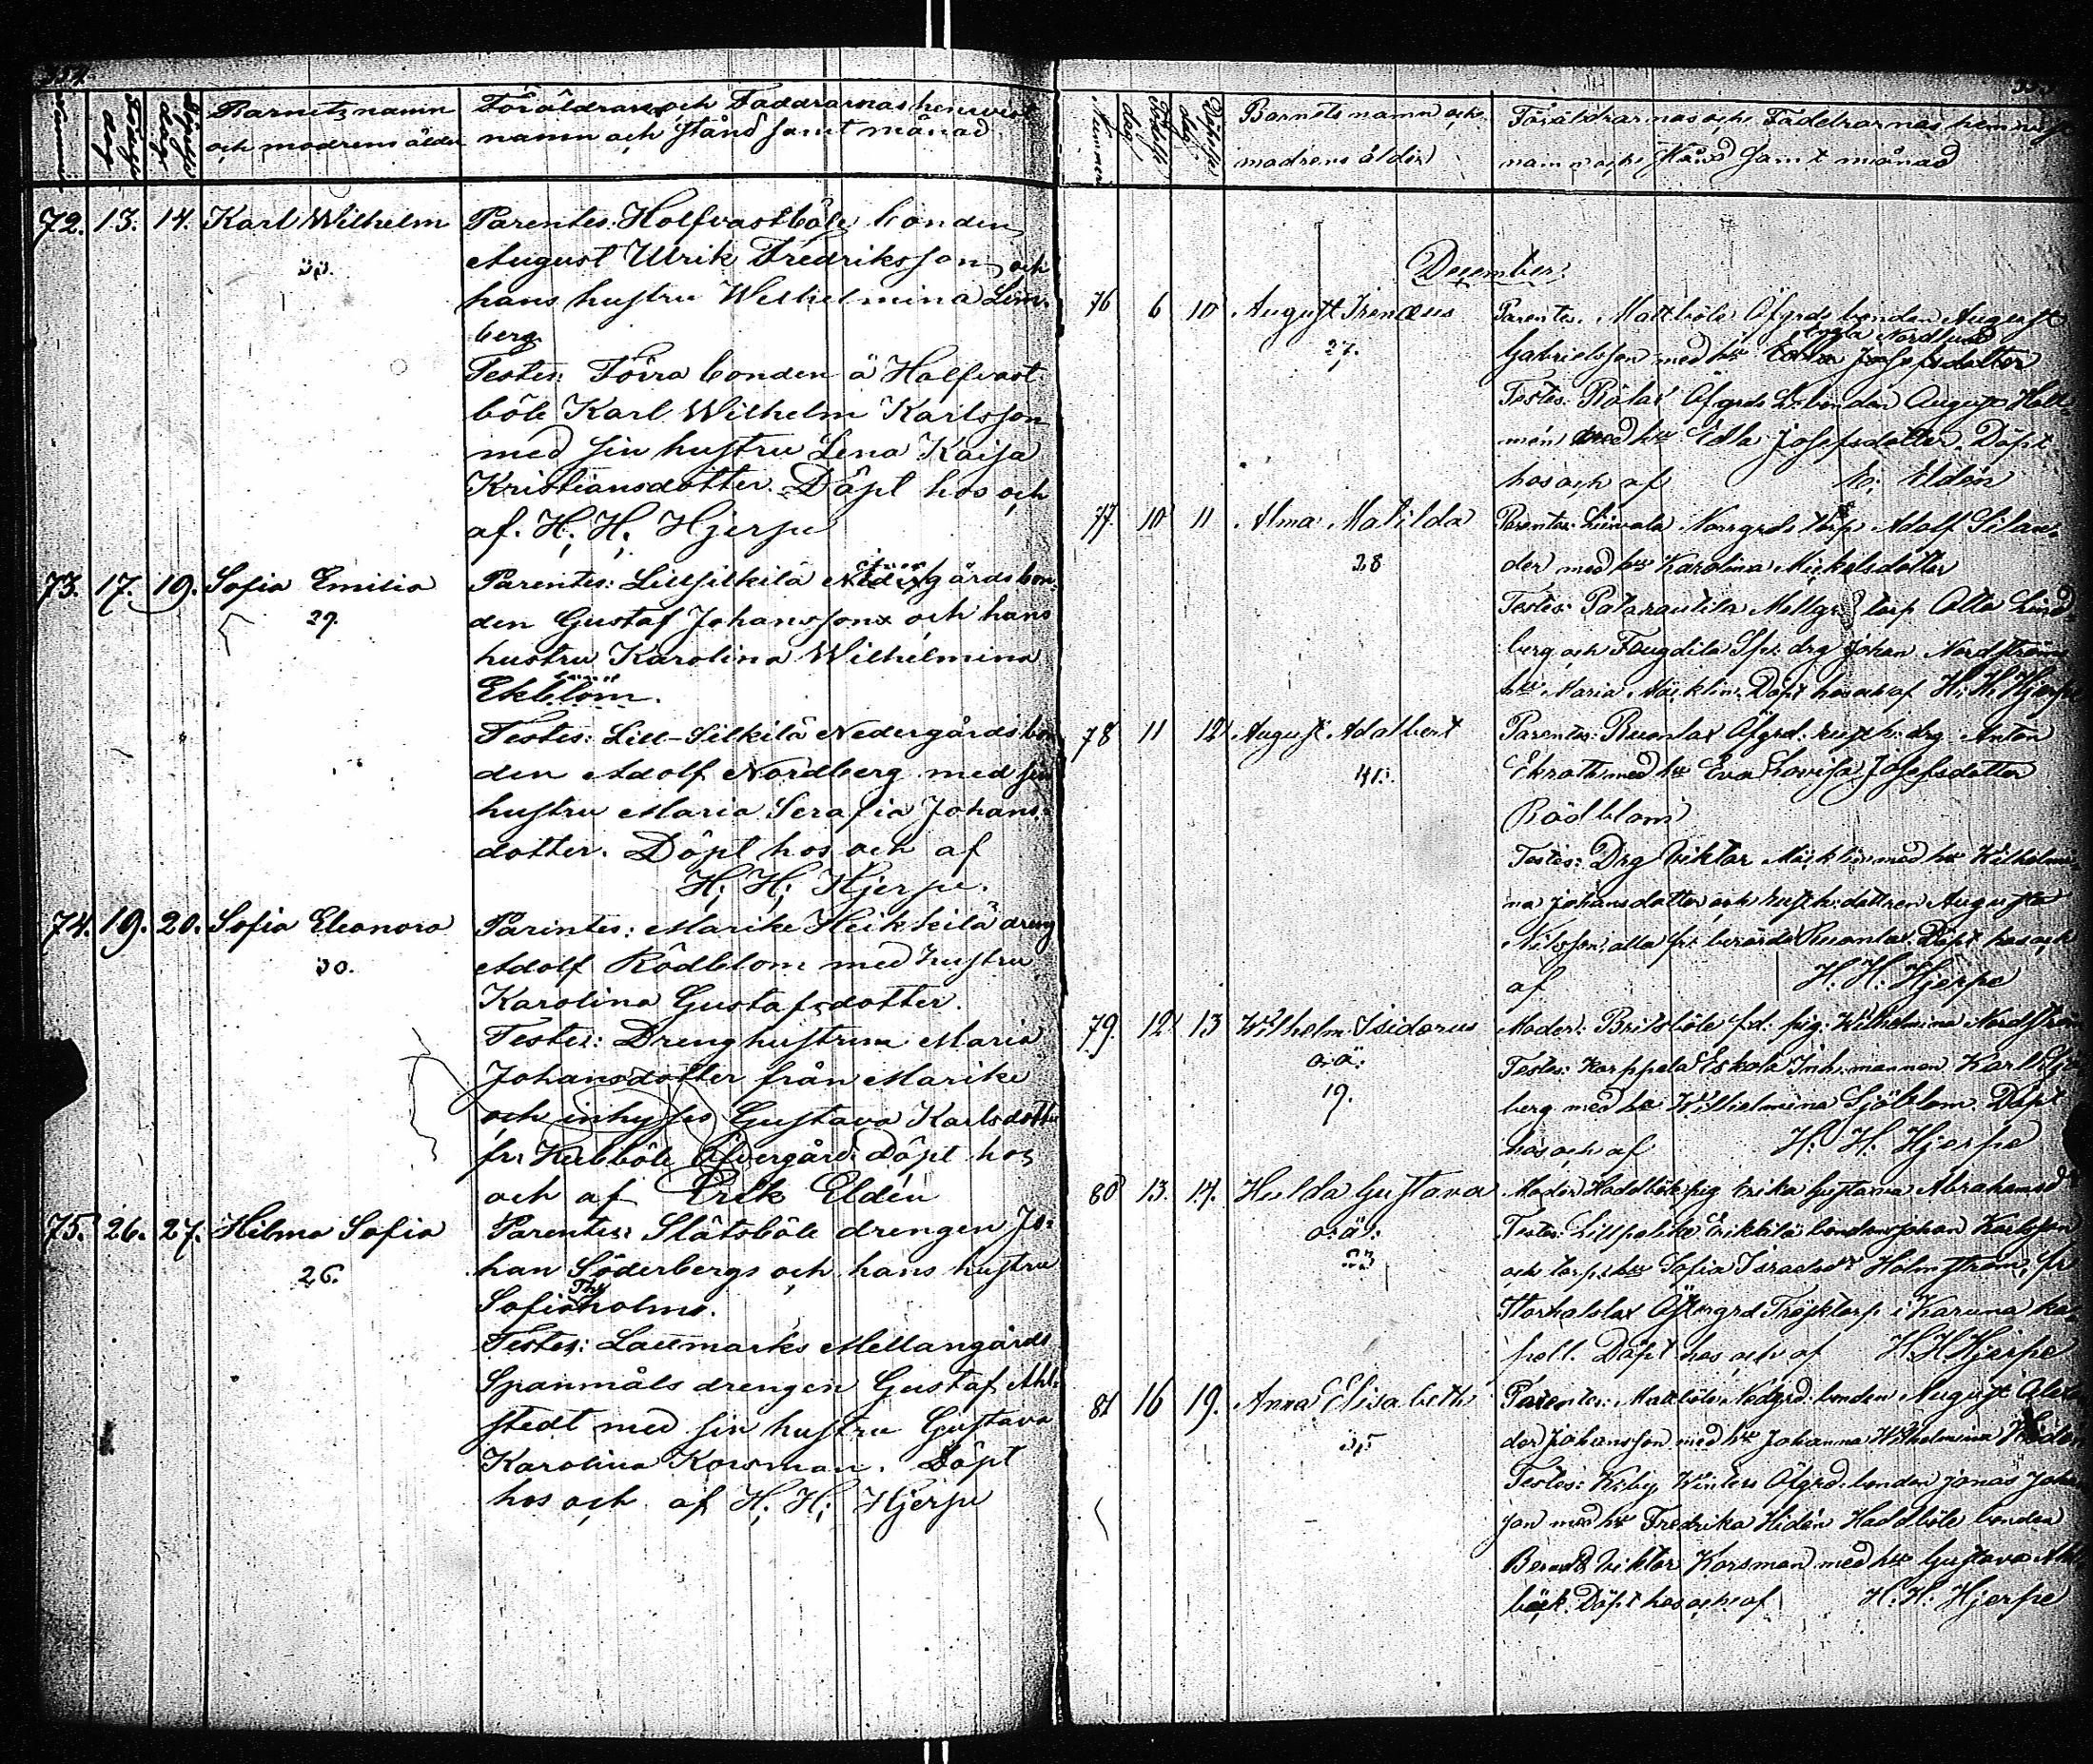 Nummer Födelse dag Döpelse dag Barnets namn och modrens ålder Föräldrarnas och Faddrarnas hemvist
namn och stånd samt månad
72. 13. 14. Karl Wilhelm Parentes: Holfvastböle bonden
August Ulrik Fredriksson och
hans hustru Wilhelmina Lim-
berg.
Testes: Förra bonden å Halfvast
böle Karl Wilhelm Karlsson
med sin hustru Lena Kaisa
Kristiansdotter. Döpt hos och
af. H. H. Hjerpe
73. 17. 19. Sofia Emilia Parentes: Lillsilkilä gårds bon-
29. den Gustaf Johansson och hans
hustru Karolina Wilhelmina
Ekblom.
Testes: Lill-Silkilä Nedergårds bon
den Adolf Nordberg med sin
hustru Maria Serafia Johans-
dotter. Döpt hos och af
H. H. Hjerpe.
74. 19. 20. Sofia Eleonora Parintes: Marike Heikkilä dreng
30. Adolf Rödblom med hustru
Karolina Gustafsdotter.
Testes: Drenghustrun Maria
Johansdotter från Marike
och inhyses Gustava Karlsdotter
fr. Kubböle Öfvergård. Döpt hos
och af Erik Eldén
75. 26. 27. Hilma Sofia Parentes: Slätsböle drengen Jo-
26. han Söderbergs och hans hustru
Sofia Thyholms.
Testes: Laumarks Mellangårds
Spanmåls drengen Gustaf Ahl-
stedt med sin hustru Gustava
Karolina Korsman. Döpt
hos och af H. H. Hjerpe
Nummer Födelse dag Döpelse dag Barnets namn och modrens ålder Föräldrarnas och Faddrarnas hemvist
namn och stånd samt månad
December.
76 6 10 August Irenæus Parentes. Mattböle Öfgrds bonden August
27. Gabrielsson med hu Josefsdotter
Nordlund
Testes: Öfgrds bonden August Holl-
mén med hu Edla Josefsdotter. Döpt
hos och af E. Eldén
77. 10 11 Alma Matilda Parentes: Norrgrds torp Adolf Silan-
28 der med hu Karolina Mickelsdotter
Testes: Mellgr. torp Otto Lind-
berg och Fougdila drg Johan Nordströms
hu Maria Mäcklin. Döpt hos och af H. H. Hjerpe
78 11 12 August Adalbert Parentes: Ruonlax Öfgrd. rusth. drg Anton
41. Ekroth med hu Eva Lovisa Josefsdotter
Rödblom
Testes: Drg Viktor Mäcklin med hu Wilhelmi-
na Johansdotter och rusth: dottren Augusta
Nilsson alla fr. berörda Ruonlax. Döpt hos och
af H. H. Hjerpe
79. 12 13 Wilhelm Isidorus Moder: Britsböle f.d. pig: Wilhelmina Nordström
o.ä. Testes: Karppela Eskola Inh. mannen Karl Sjö
19. berg med hu Wilhelmina Sjöblom. Döpt
hos och af H. H. Hjerpe
80 13. 17. Hulda Gustava Moder: Haddböle pig Erika Gustava Abrahamsdr
o.ä. Testes: Lillpalike Erikkilä bonden Johan Karlsson
23 och torp. hu Sofia Israelsdr Holmström, fr
Östergrd Tröjktorp i Karuna ka-
pell. Döpt hos och af H. H. Hjerpe
81 16 19. Anna Elisabeth Parentes: Mattböle Nedgrd. bonden August Alexan
35 der Johansson med hu Johanna Wilhelmina Hidén
Testes: Winters Öfgrd. bonden Jonas Johans
son med hu Fredrika Hidén Haddböle bonden
Berndt Viktor Korsman med hu Gustava Ahl
bäck. Döpt hos och af H. H. Hjerpe